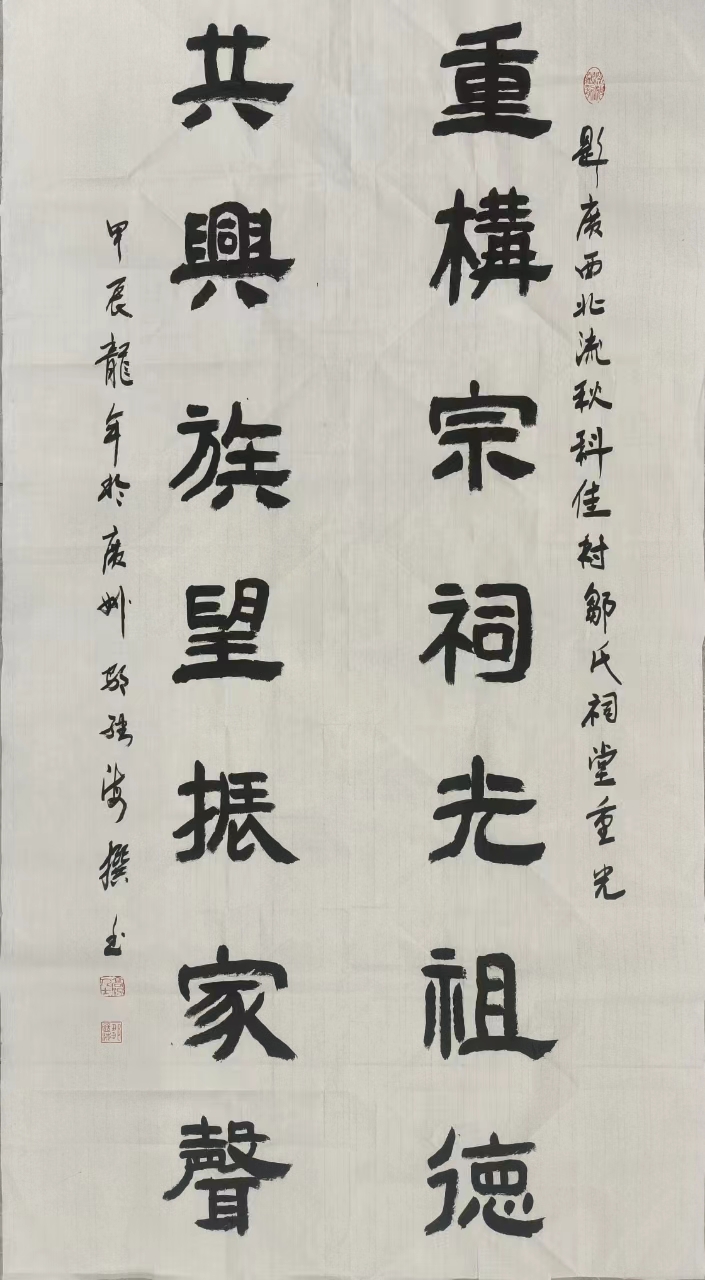 題广西北流秋科佳村鄒氏祠堂重光
重構宗祠光祖德
共興族望振家聲
甲辰龍年於廣州 撰書